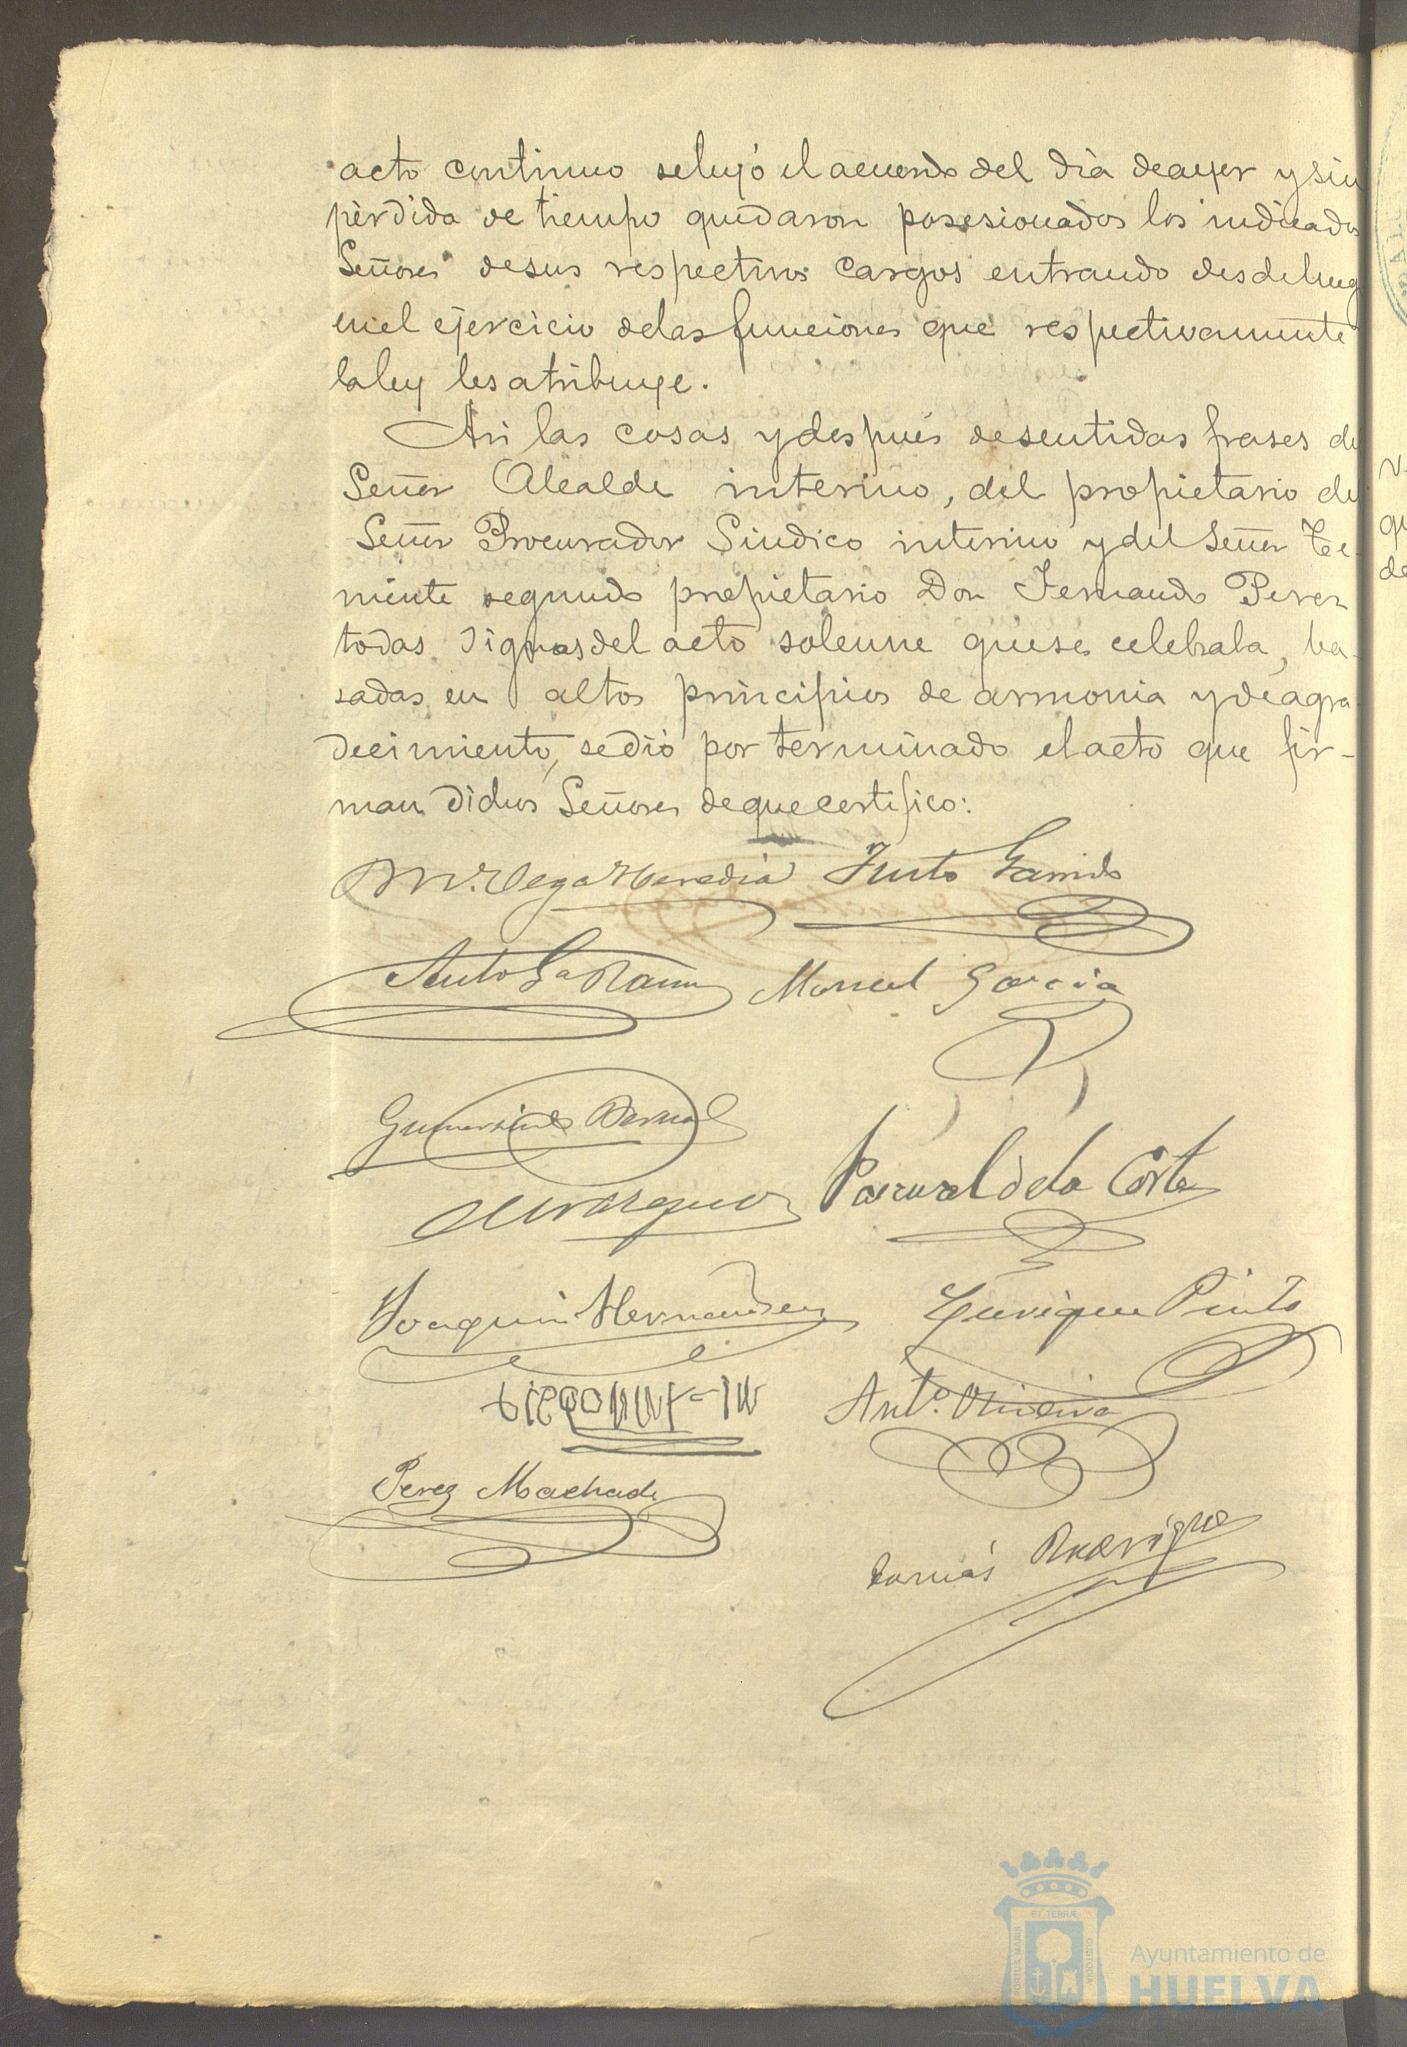 acto continuo se leyó el acuerdo del dia de ayer y sin
pérdida de tiempo quedaron posesionados los indicados
Señores de sus respectivos cargos entrando desde lueg
en el ejercicio de las funciones que respectivamente
la ley les atribuye.
Asi las cosas y después de sentidas frases del
Señor Alcalde interino, del propietario del
Señor Procurador Sindico interino y del Señor Te-
niente segundo propietario Don Fernando Perez
todas dignas del acto solemne que se celebraba, ba-
sadas en altos principios de armonia y de agra-
decimiento, se dió por terminado el acto que fir-
man dichos Señores de que certifico:
M. Vega Heredia Justo Garrido
Manuel García
Gumersindo Bernal
Vazquez Pascual de la Corte
Joaquin Hernandez Enrique Pinto
Antº. Oliveira
Perez Machado
Tomás Rodriguez
PORTUS MARIS ET TERRÆ CUSTODIA
Ayuntamiento de
HUELVA